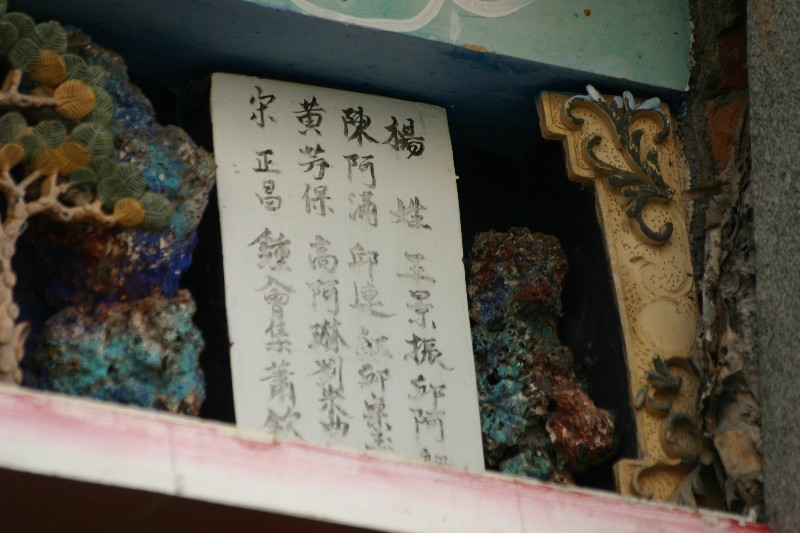 楊 姓 王景振 邱阿
陳阿滿 邱連 邱
黃芳保 高阿琳 劉
宋正昌 鍾會集 蕭欽